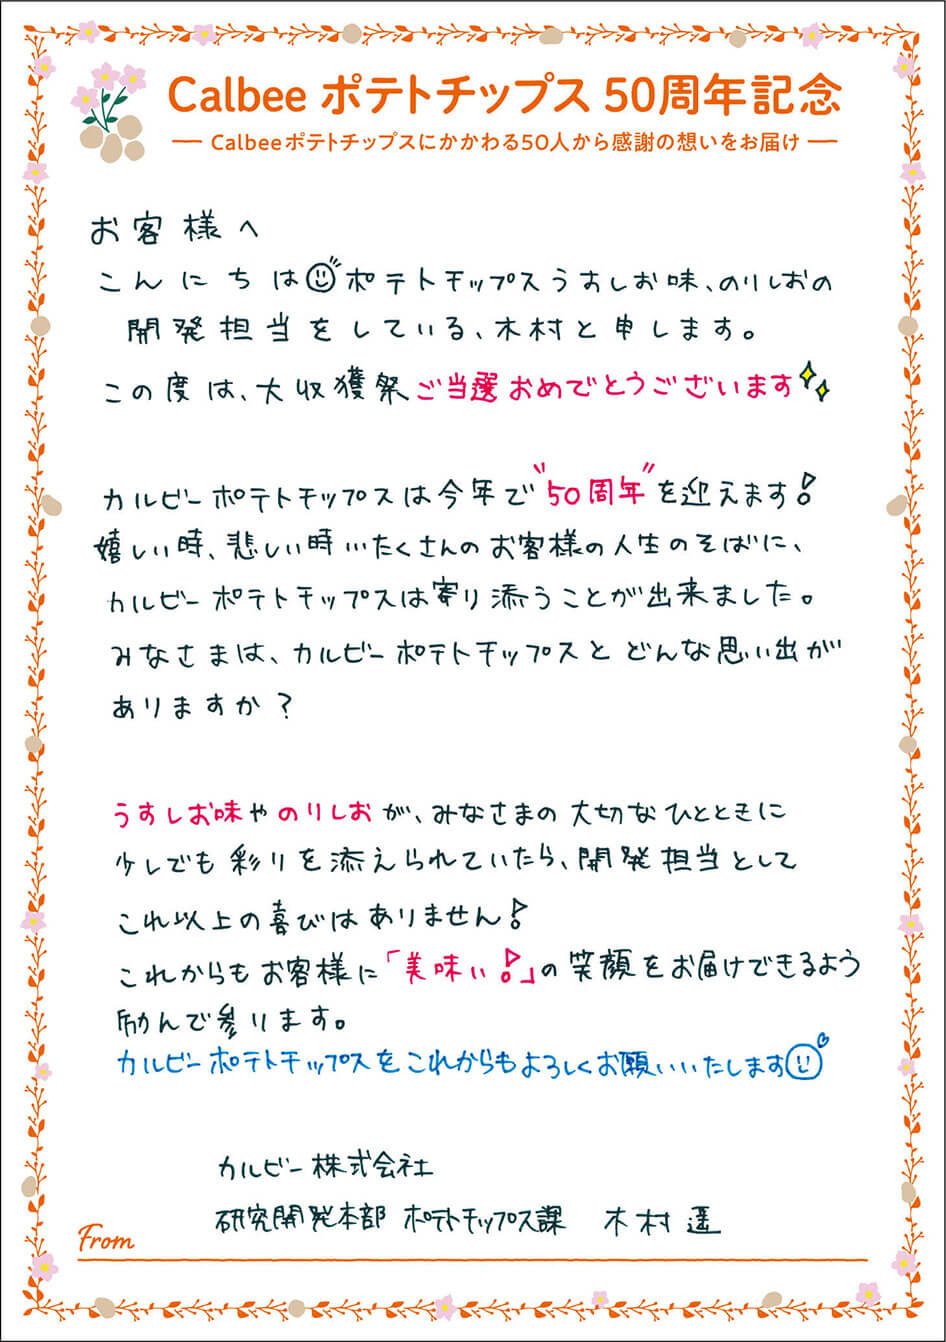 Calbee ポテトチップス 50周年記念
Calbeeポテトチップスにかかわる50人から感謝の想いをお届け
お客様へ
こんにちは ポテトチップスうすしお味、のりしおの
開発担当をしている、木村と申します。
この度は、大収穫祭ご当選おめでとうございます
カルビーポテトチップスは今年で"50周年"を迎えます!
嬉しい時、悲しい時…たくさんのお客様の人生のそばに、
カルビーポテトチップスは寄り添うことが出来ました。
みなさまは、カルビーポテトチップスとどんな思い出が
ありますか?
うすしお味やのりしおが、みなさまの大切なひとときに
少しでも彩りを添えられていたら、開発担当として
これ以上の喜びはありません!
これからもお客様に「美味い!」の笑顔をお届けできるよう
励んで参ります。
カルビーポテトチップスをこれからもよろしくお願いいたします
カルビー株式会社
研究開発本部 ポテトチップス課 木村 遥
From